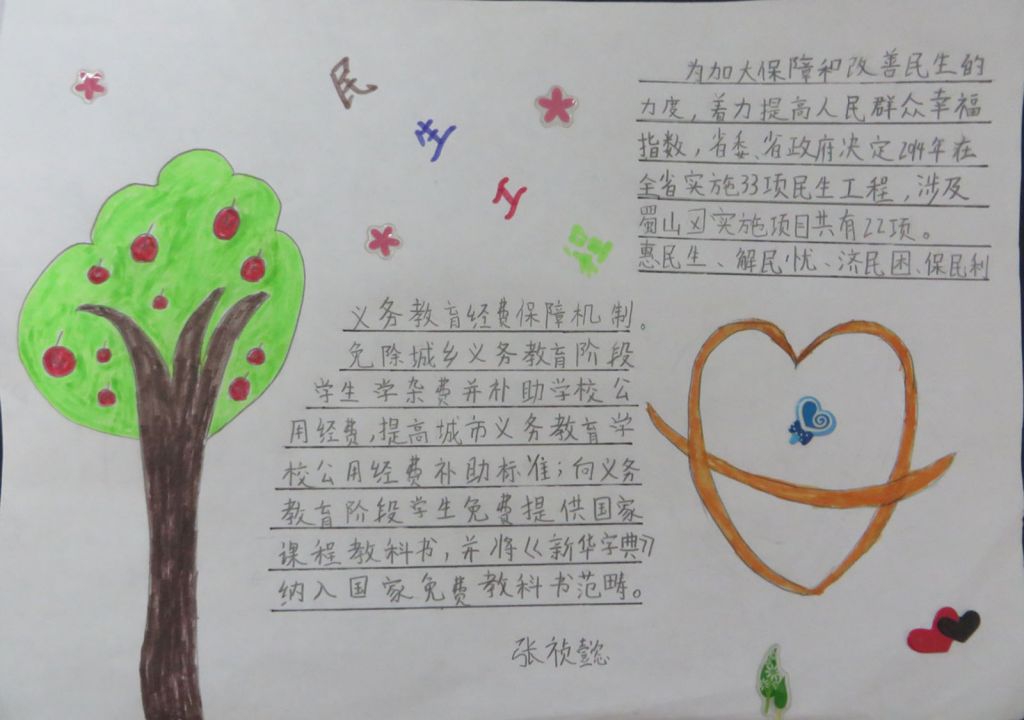 民生工程
为加大保障和改善民生的
力度，着力提高人民群众幸福
指数，省委、省政府决定2014年在
全省实施33项民生工程，涉及
蜀山区实施项目共有22项。
惠民生、解民忧、济民困、保民利
义务教育经费保障机制。
免除城乡义务教育阶段
学生学杂费并补助学校公
用经费，提高城市义务教育学
校公用经费补助标准；向义务
教育阶段学生免费提供国家
课程教科书，并将《新华字典》
纳入国家免费教科书范畴。
张祯懿